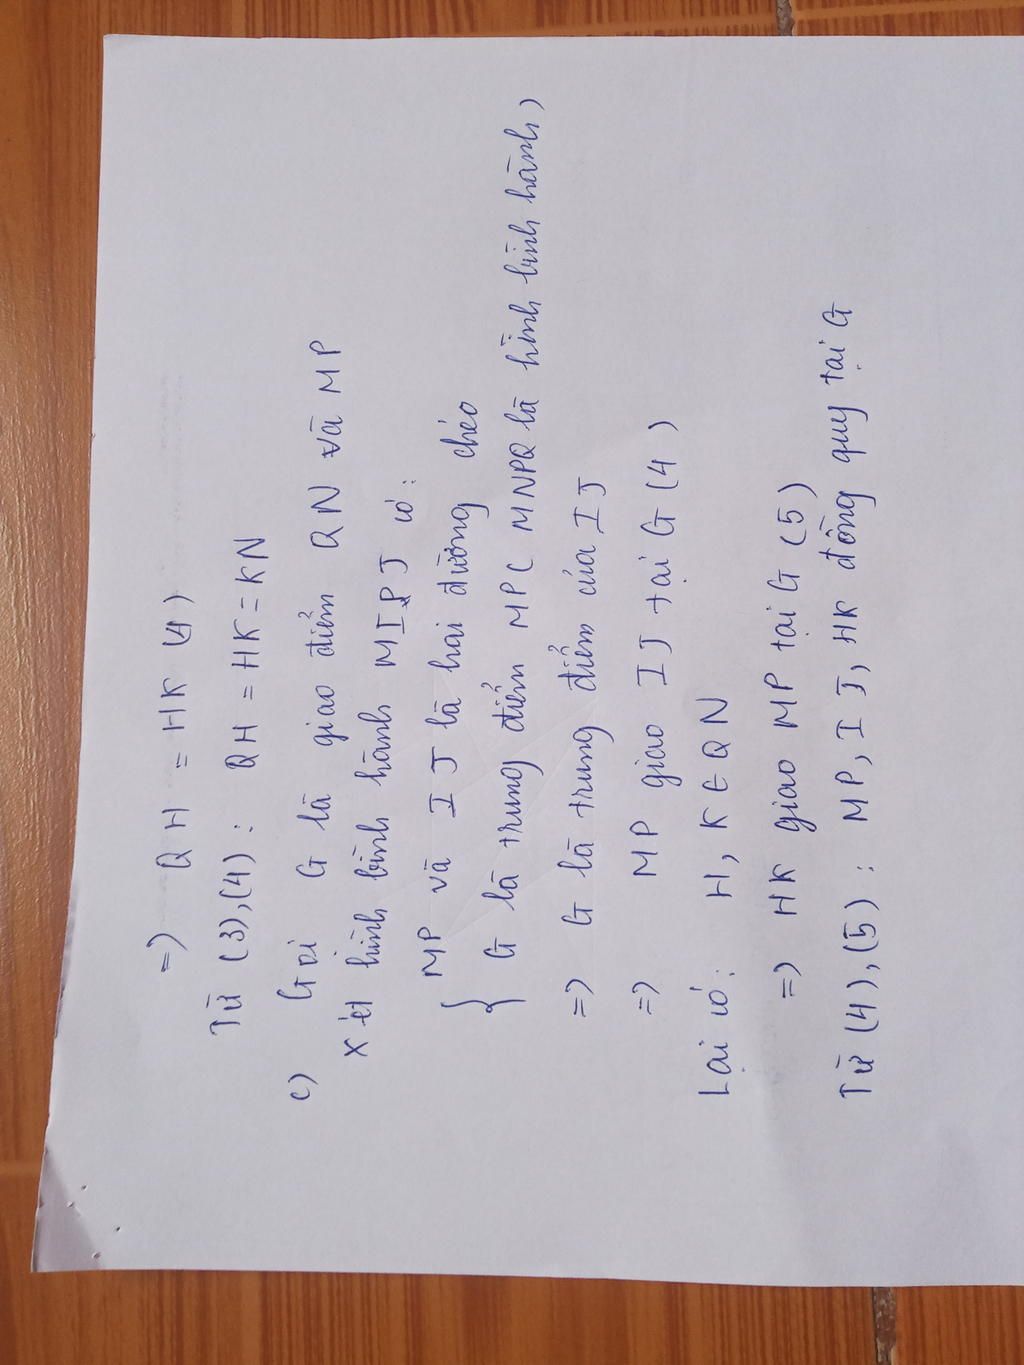 => QH = HK (4)
Từ (3),(4) : QH = HK = KN
c) Gọi G là giao điểm QN và MP
Xét hình bình hành MIPJ có:
{ MP và IJ là hai đường chéo
G là trung điểm MP ( MNPQ là hình bình hành)
=> G là trung điểm của IJ
=> MP giao IJ tại G (4)
Lại có: H, K ∈ QN
=> HK giao MP tại G (5)
Từ (4),(5) : MP, IJ, HK đồng quy tại G